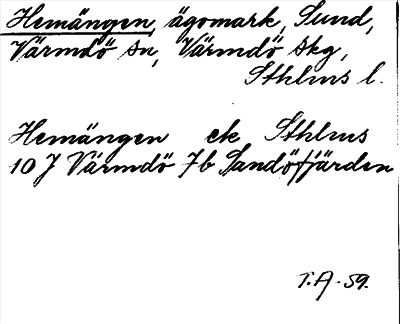 Hemängen, ägomark, Sund,
Värmdö sn, Värmdö skg,
Sthlms l.
Hemängen ek Sthlms
10 J Värmdö 7b Sandöfjärden
T.A. 59.